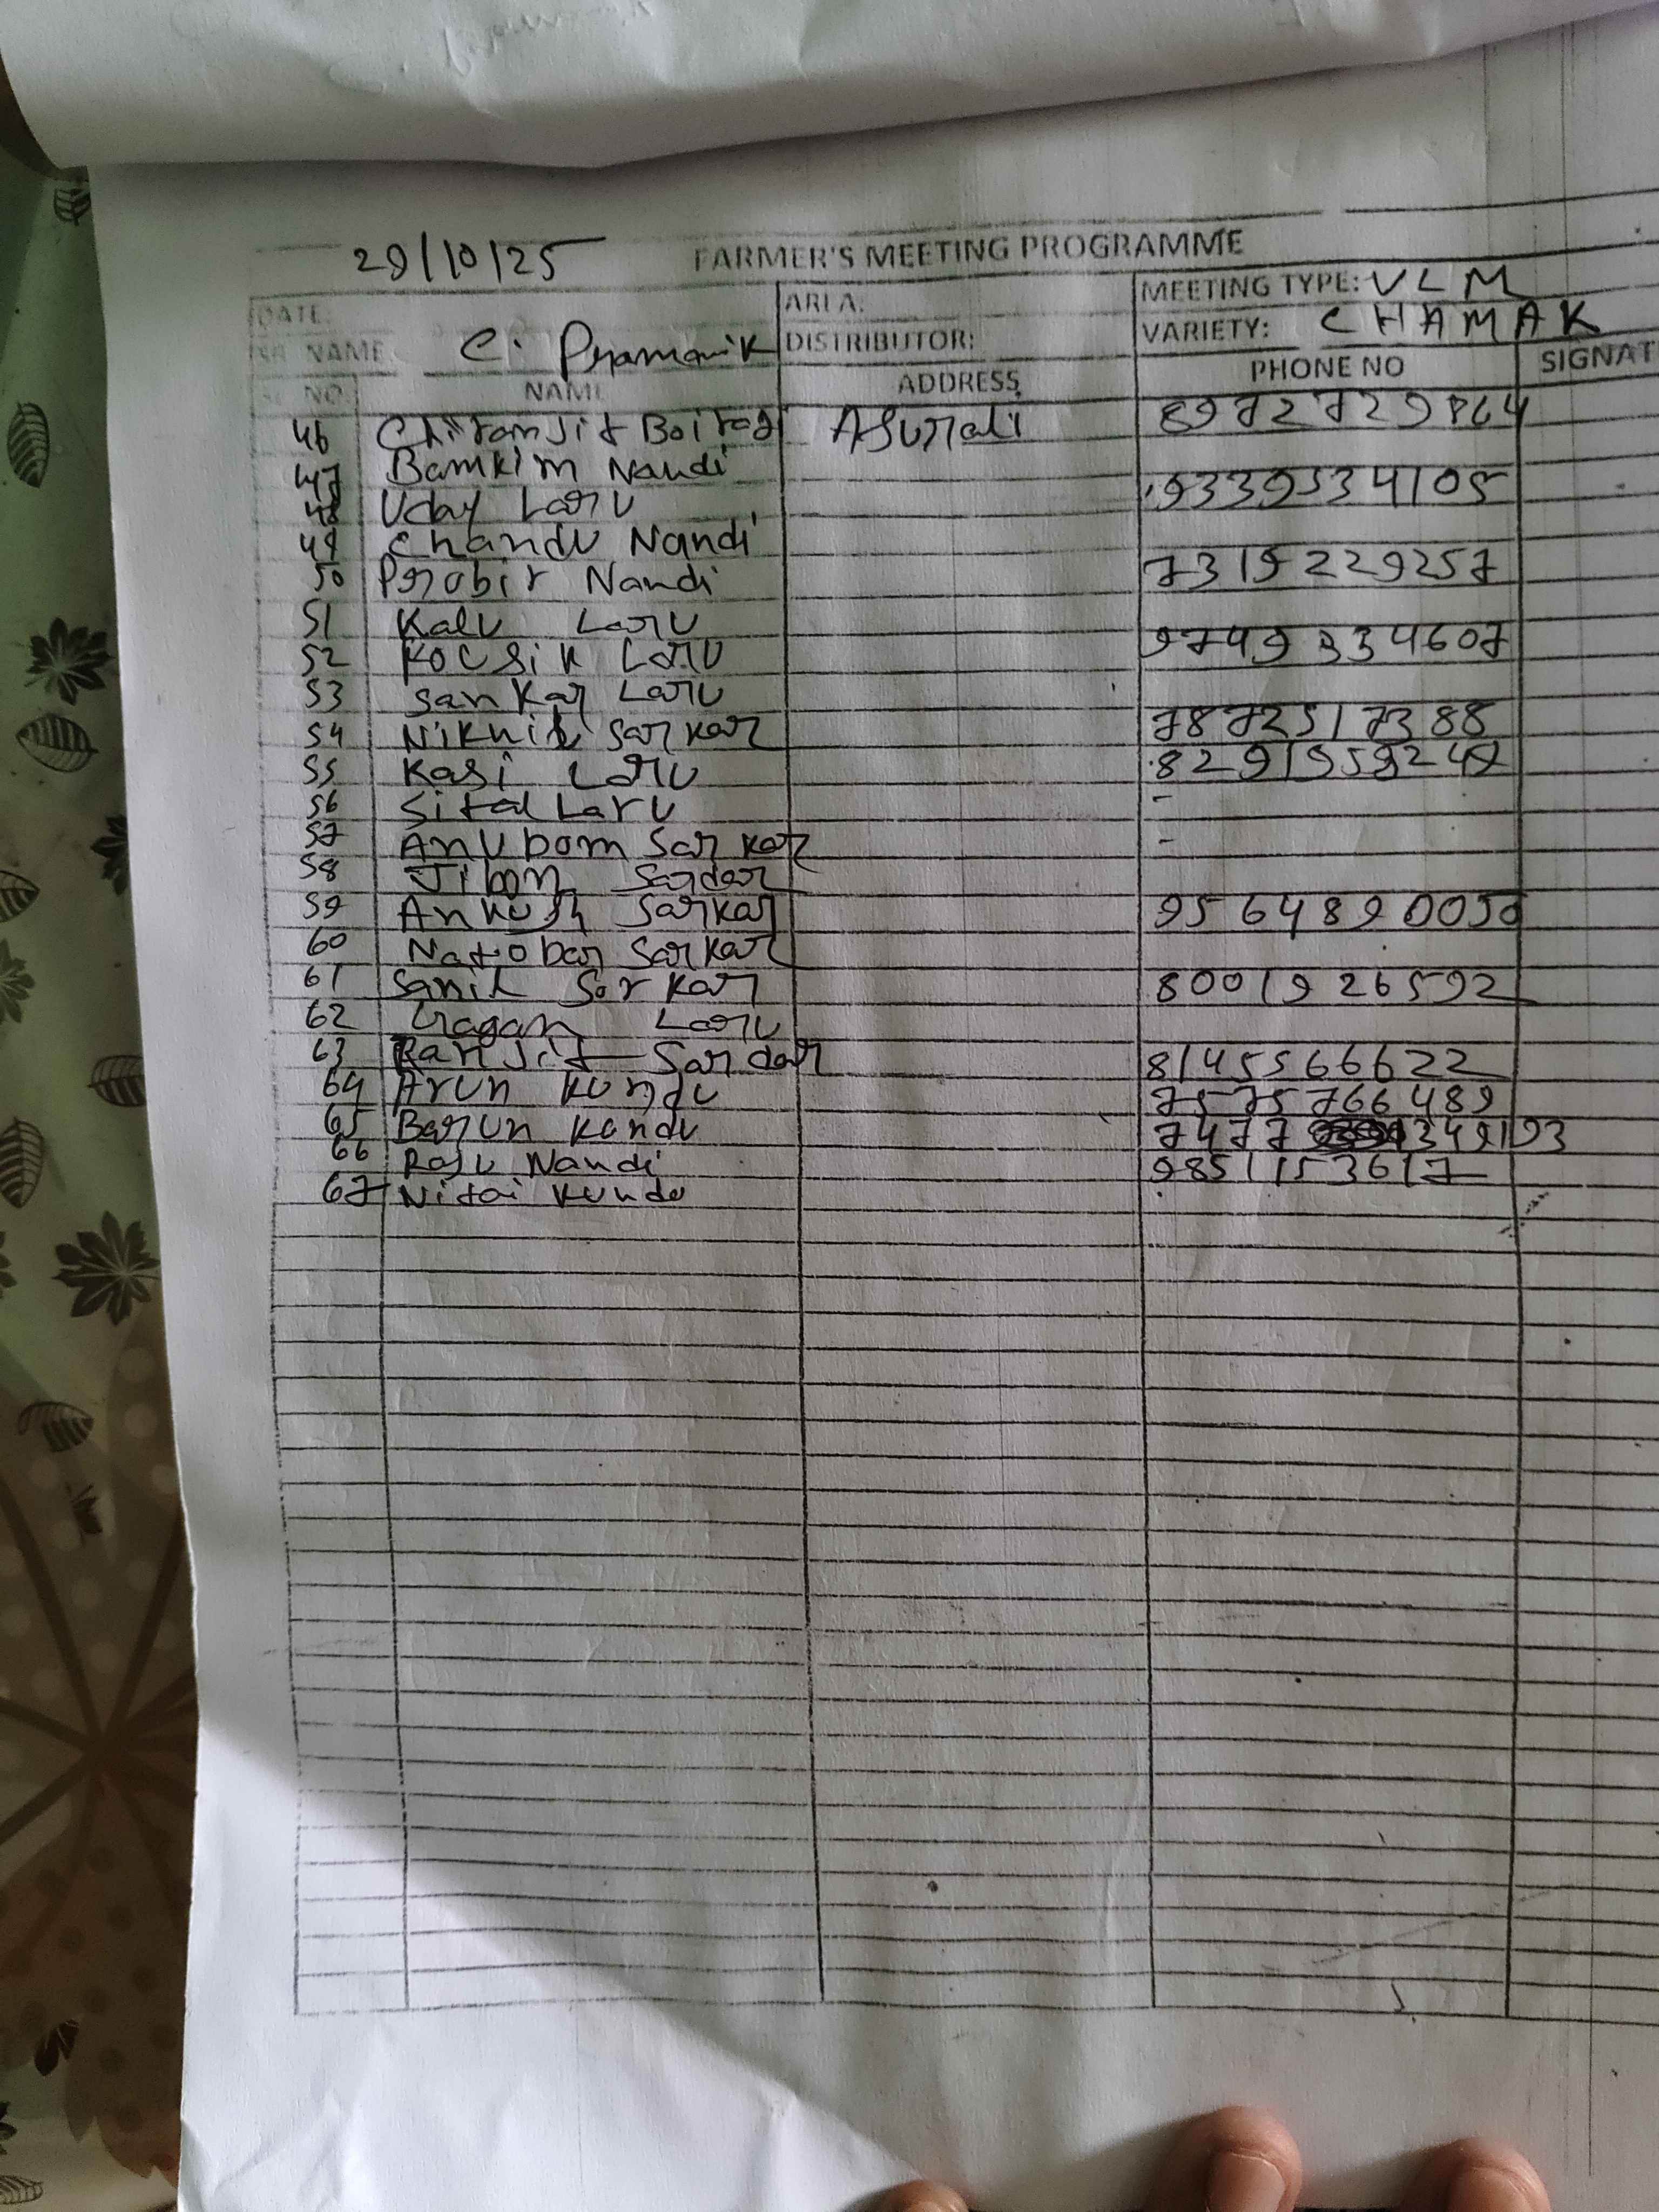 29/10/25 FARMER'S MEETING PROGRAMME
DATE: AREA: MEETING TYPE: VLM
NAME: C. Pramanik DISTRIBUTOR: VARIETY: CHAMAK
NO. NAME ADDRESS PHONE NO SIGNAT
46 Chiranjit Boirag Asurali 8972729864
47 Bamkim Nandi
48 Uday Laru 9339534105
49 Chandu Nandi
50 Probir Nandi 7319229257
51 Kalu Laru
52 Kousik Laru 9749334607
53 Sankar Laru
54 Nikhil Sarkar 7872517388
55 Kasi Laru
56 Sital Laru -
57 Anubom Sarkar -
58 Jibon Sardar
59 Ankush Sarkar 9564890050
60 Natobar Sarkar
61 Sanil Sorkar 8001926592
62 Gagan Laru
63 Ranjit Sardar 8145566622
64 Arun Kundu 7575766489
65 Barun Kundu 7477349193
66 Raju Nandi 9851153617
67 Nitai Kundu